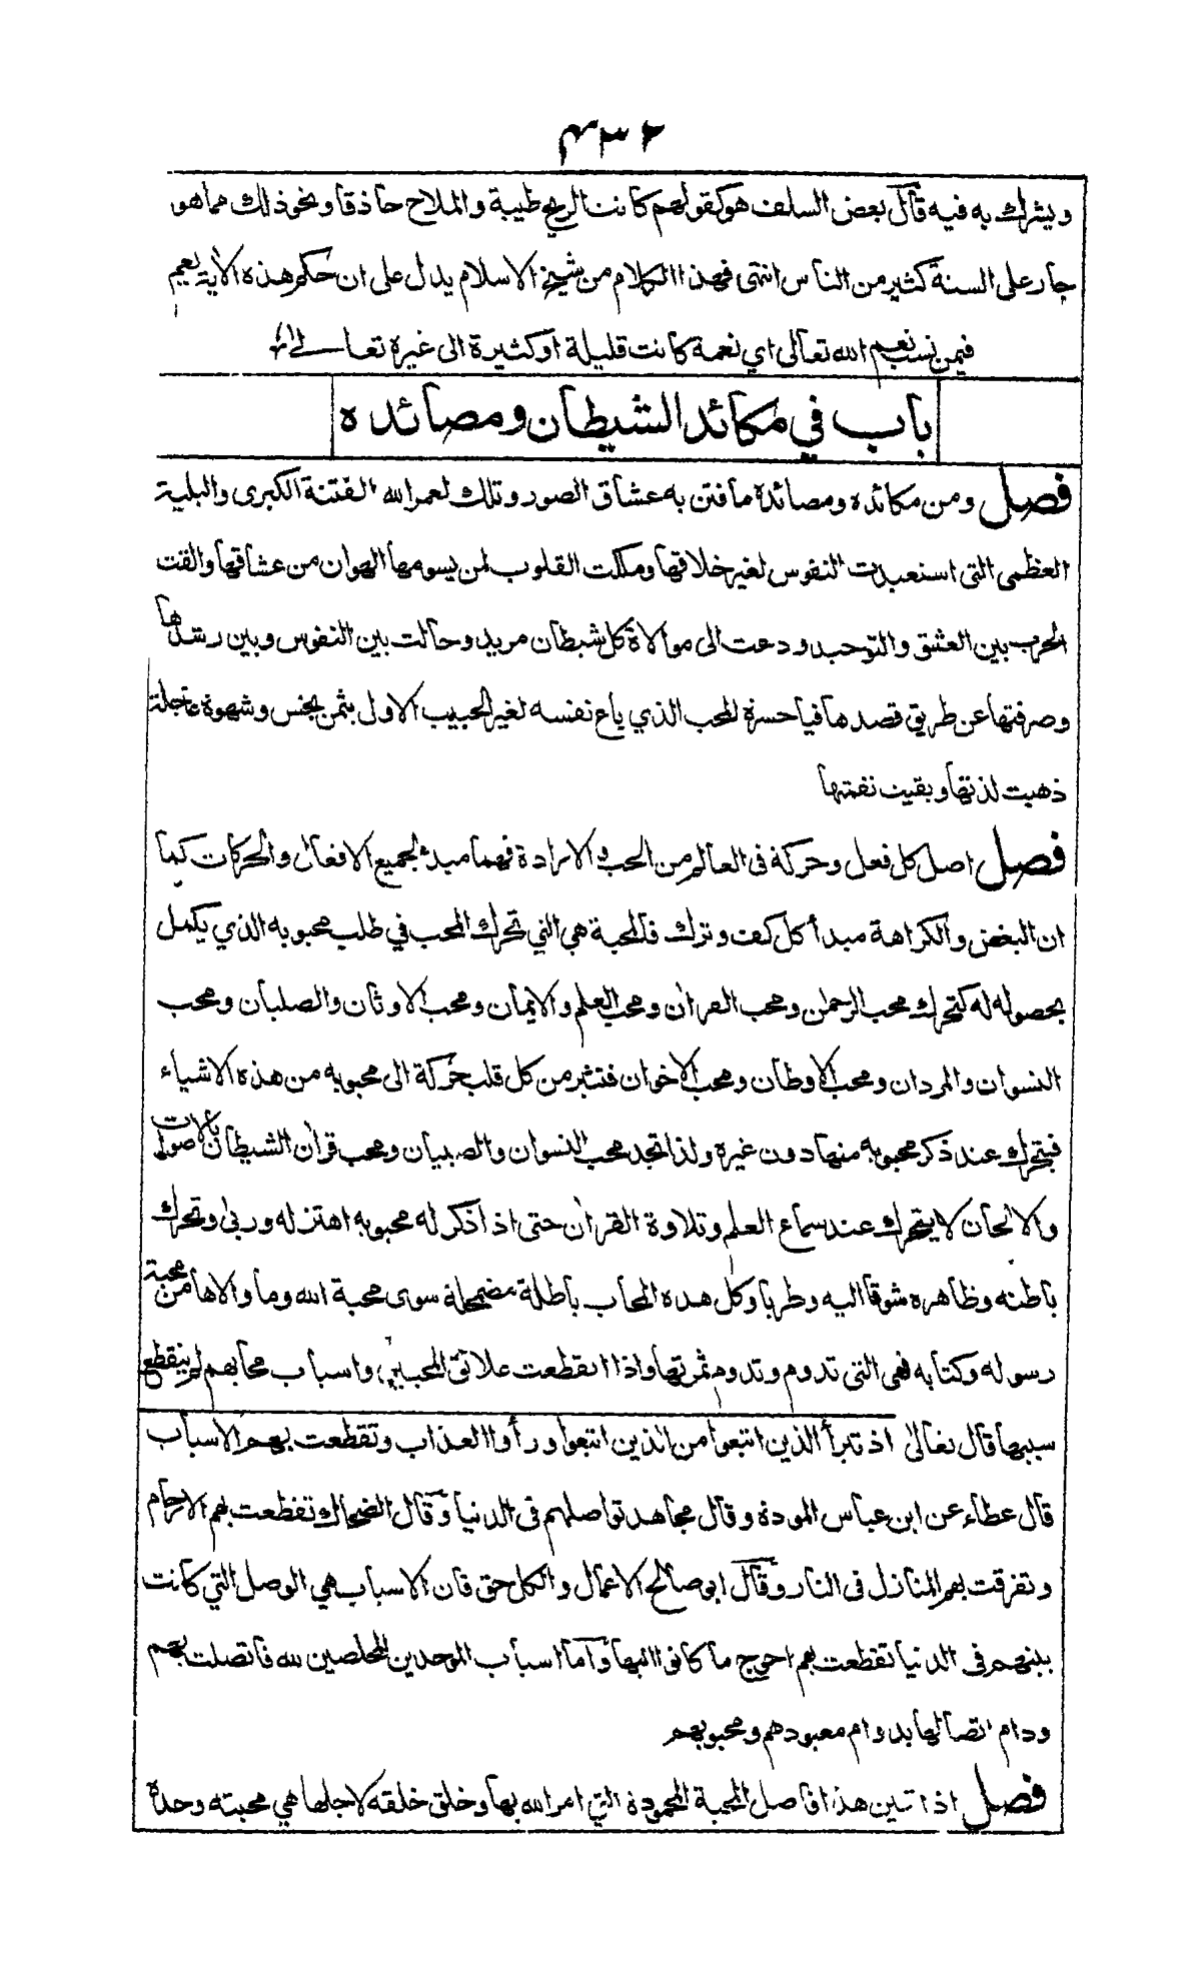 ۴۳۲
ويشرك به فيه قال بعض السلف هو كقولهم كانت الريح طيبة والملاح حاذقا ونحو ذلك مما هو
جار على السنة كثير من الناس انتهى فهذا الكلام من شيخ الاسلام يدل على ان حكم هذه الآية يعم
فيمن نسب نعم الله تعالى اي نعمة كانت قليلة او كثيرة الى غيرة تعالى
باب في مكائد الشيطان ومصائده
فصل ومن مكائده ومصائدة ما فتن به عشاق الصور وتلك لعمر الله الفتنة الكبرى والبلية
العظمى التي استعبدت النفوس لغير خلاقها وملكت القلوب لمن يسومها الهوان من عشاقها والقت
الحرب بين العشق والتوحيد ودعت الى موالاة كل شيطان مريد وحالت بين النفوس وبين رشدها
وصرفتها عن طريق قصدها فيا حسرة للمحب الذي باع نفسه لغير الحبيب الاول بثمن بخس وشهوة عاجلة
ذهبت لذتها وبقيت تبعتها
فصل اصل كل فعل وحركة فى العالم من الحب والارادة فهما مبدء لجميع الافعال والحركات كما
ان البغض والكراهة مبدأ كل كف وترك فالمحبة هي التي تحرك المحب في طلب محبوبه الذي يكمل
بحصوله له كتحرك محب الرحمن ومحب القران ومحب العلم والايمان ومحب الاوثان والصلبان ومحب
النسوان والمردان ومحب الاوطان ومحب الاخوان فتثير من كل قلب حركة الى محبوبه من هذه الاشياء
فيتحرك عند ذكر محبوبه منها دون غيره ولذا تجد محب النسوان والصبيان ومحب قران الشيطان بالاصوات
والالحان لا يتحرك عند سماع العلم وتلاوة القران حتى اذا ذكر له محبوبه اهتز له وربى وتحرك
باطنه وظاهره شوقا اليه وطربا وكل هذه المحاب باطلة مضمحلة سوى محبة الله وما والاها من محبة
رسوله وكتابه فهى التى تدوم وتدوم ثمرتها واذا انقطعت علائق المحبين واسباب محابهم لم ينقطع
سببها قال تعالى اذ تبرأ الذين اتبعوا من الذين اتبعوا ورأوا العذاب وتقطعت بهم الاسباب
قال عطاء عن ابن عباس المودة وقال مجاهد تواصلهم فى الدنيا وقال الضحاك تقطعت بهم الارحام
وتفرقت بهم المنازل فى النار وقال ابو صالح الاعمال والكل حق فان الاسباب هي الوصل التي كانت
بينهم فى الدنيا تقطعت بهم احوج ما كانوا اليها واما اسباب الموحدين المخلصين لله فاتصلت بهم
ودام اتصالها بدوام معبودهم ومحبوبهم
فصل اذا تبين هذا فاصل المحبة المحمودة التي امر الله بها وخلق خلقه لاجلها هي محبته وحدة